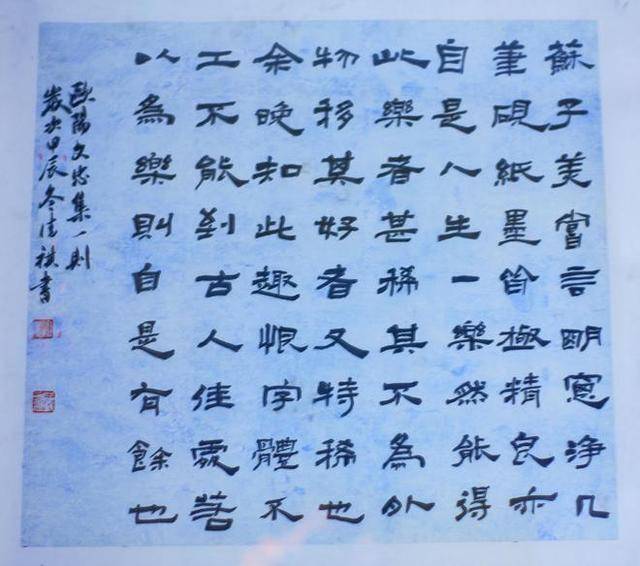 蘇子美嘗言明窓淨几
筆硯紙墨皆極精良亦
自是人生一樂然能得
此樂者甚稀其不為外
物移其好者又特稀也
余晚知此趣恨字體不
工不能到古人佳處若
以為樂則自是有餘也
歐陽文忠集一則
歲次甲辰冬佳祺書